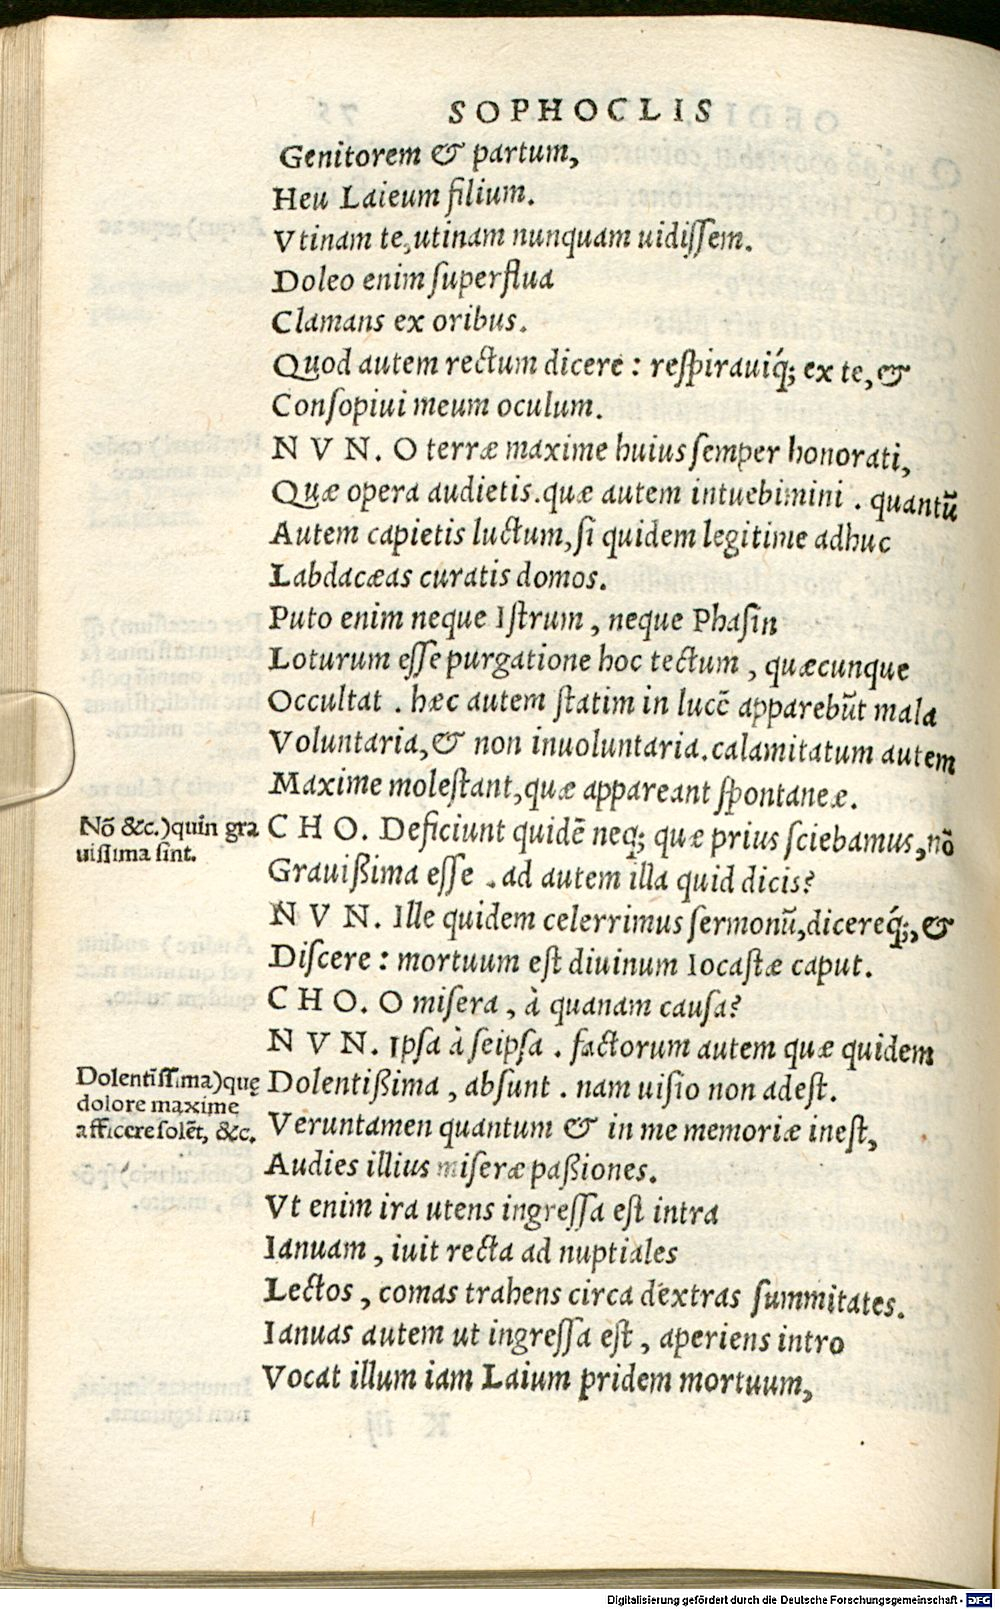 SOPHOCLIS
Genitorem & partum,
Heu Laieum filium.
Vtinam te, utinam nunquam uidiſſem.
Doleo enim ſuperflua
Clamans ex oribus.
Quod autem rectum dicere : reſpirauiq́; ex te, &
Conſopiui meum oculum.
N V N. O terræ maxime huius ſemper honorati,
Quæ opera audietis. quæ autem intuebimini . quantũ
Autem capietis luctum, ſi quidem legitime adhuc
Labdacæas curatis domos.
Puto enim neque Iſtrum , neque Phaſin
Loturum eſſe purgatione hoc tectum , quæcunque
Occultat . hæc autem ſtatim in lucẽ apparebũt mala
Voluntaria, & non inuoluntaria. calamitatum autem
Maxime moleſtant, quæ appareant ſpontaneæ.
Nõ &c.) quin gra
uiſſima ſint.
C H O. Deficiunt quidẽ neq; quæ prius ſciebamus, nõ
Grauißima eſſe . ad autem illa quid dicis?
N V N. Ille quidem celerrimus ſermonũ, dicereq́;, &
Diſcere : mortuum eſt diuinum Iocaſtæ caput.
C H O. O miſera , à quanam cauſa?
N V N. Ipſa à ſeipſa . factorum autem quæ quidem
Dolentiſſima) quę
dolore maxime
afficere ſolẽt, &c.
Dolentißima , abſunt . nam uiſio non adeſt.
Veruntamen quantum & in me memoriæ ineſt,
Audies illius miſeræ paßiones.
Vt enim ira utens ingreſſa eſt intra
Ianuam , iuit recta ad nuptiales
Lectos , comas trahens circa dextras ſummitates.
Ianuas autem ut ingreſſa eſt , aperiens intro
Vocat illum iam Laium pridem mortuum,
Digitalisierung gefördert durch die Deutsche Forschungsgemeinschaft - DFG